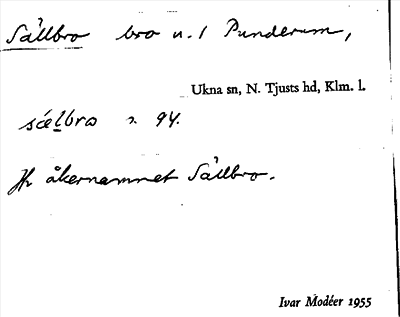 Sällbro bro n. 1 Punderum,
Ukna sn, N. Tjusts hd, Klm. l.
sœlbro 94.
Jfr åkernamnet Sällbro.
Ivar Modéer 1955